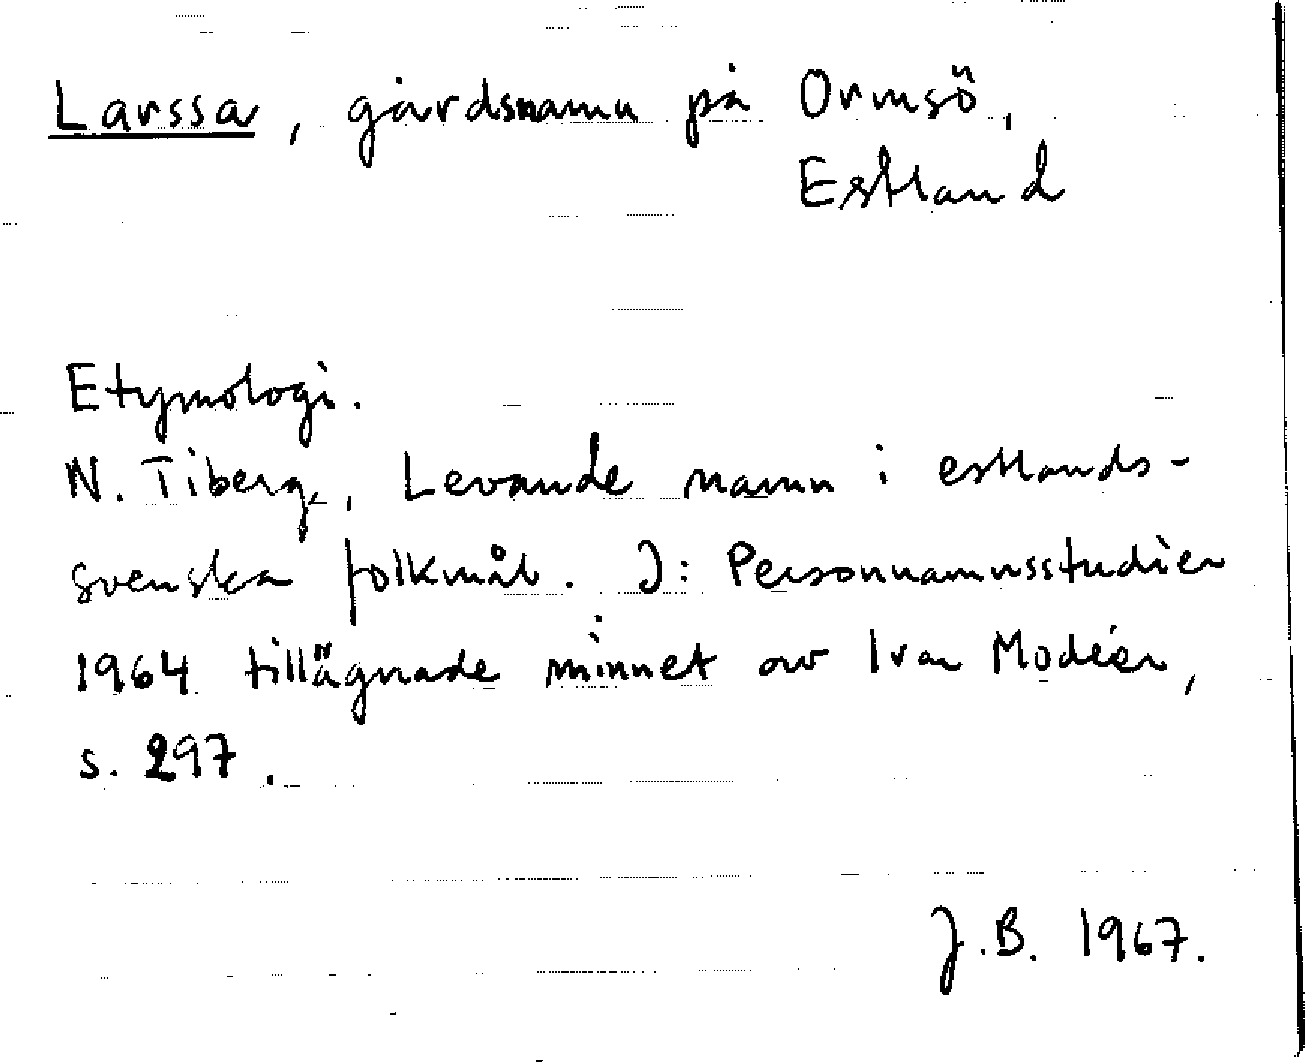 Larssa, gårdsnamn på Ormsö,
Estland
Etymologi.
N. Tiberg, Levande namn i estlands-
svenska folkmål. I: Personnamnsstudier
1964 tillägnade minnet av Ivar Modéer,
s. 297.
J.B. 1967.